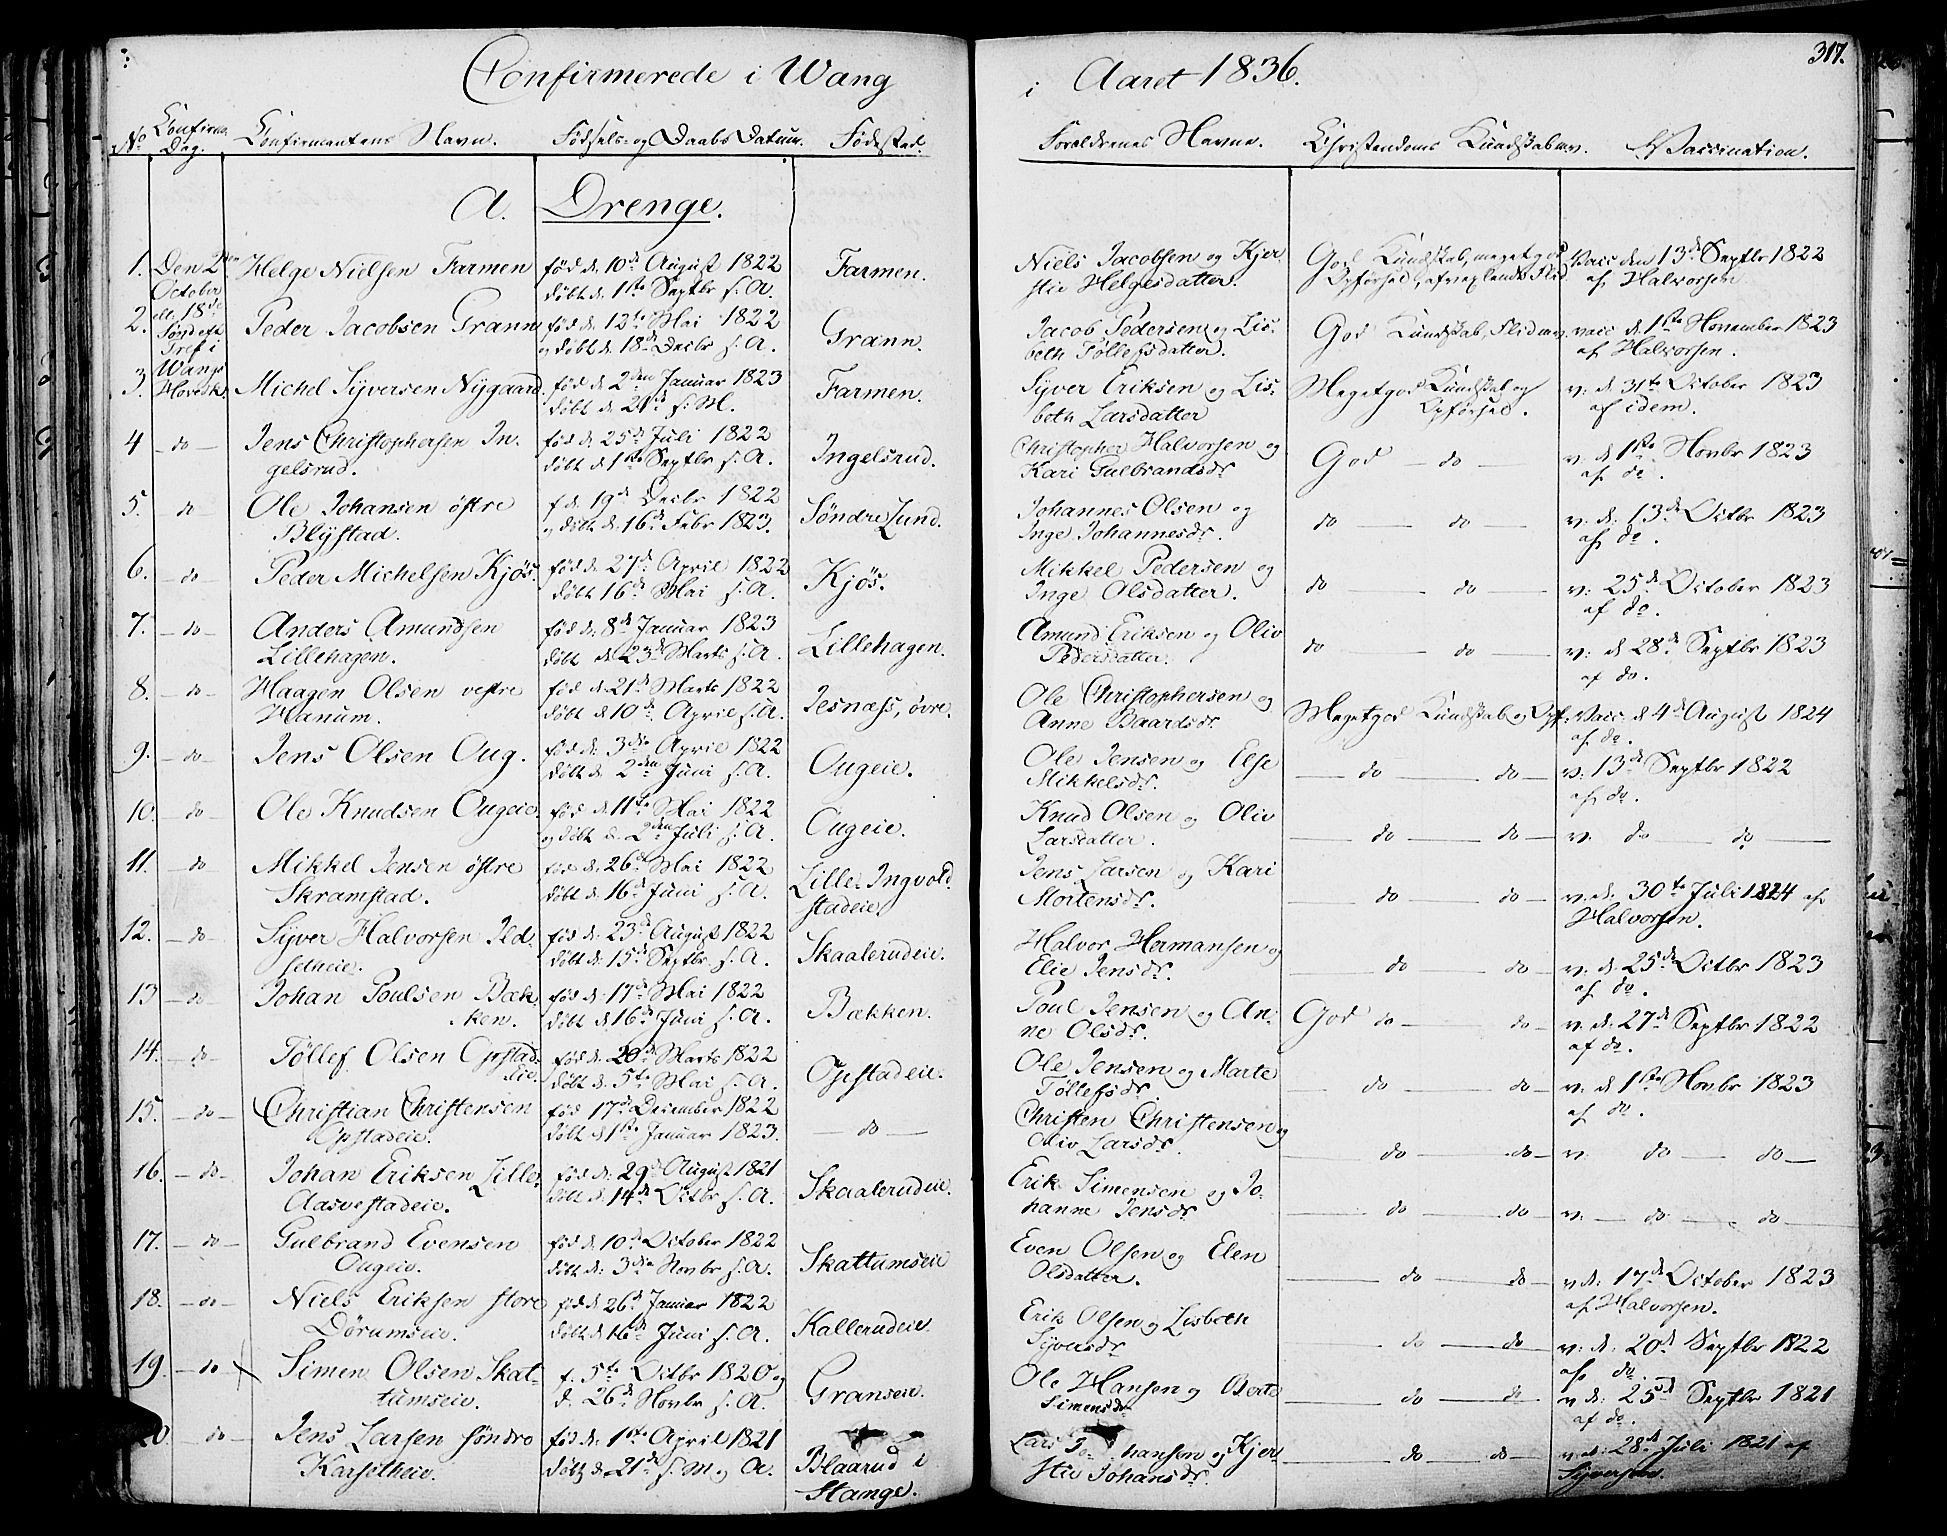 Confirmerede i Wang i Aaret 1836.
317.
No Confirm. Dag. Confirmantens Navn. Fødsels- og Daabs Datum. Fødested. Forældrenes Navne. Christendoms Kundskab m.v. Vaccination.
A. Drenge.
1. Den 2den October Helge Nielsen Farmen fød d. 10de August 1822 Farmen. Niels Jacobsen og Kjer- God Kundskab, meget god Vacc. den 13de Septbr 1822
døbt d. 1ste Septbr s. A. stie Helgesdatter. Opførsel, Flid af Halvorsen
2. ell. 18de Søndefter Tref. i Peder Jacobsen Grann fød d. 12te Mai 1822 Grann. Jacob Pedersen og Lis- God Kundskab, Flid m.v. vacc. d. 1ste November 1823
og døbt d. 18de Decbr s. A. beth Tollefsdatter. af Halvorsen.
3. Wangs Hovedk. Michel Syversen Nygaard fød d. 2den Januar 1823 Farmen. Syver Eriksen og Lis- Megetgod Kundskab og v. d. 31te October 1823
døbt d. 21de s. M. beth Larsdatter Opførsel. af idem.
4 do Jens Christophersen In- fød d. 25de Juli 1822 Ingelsrud. Christopher Halvorsen og God do v. d. 1ste Novbr 1823
gelsrud. døbt d. 1ste Septbr s. A. Kari Gulbrandsdr. af do.
5. do Ole Johansen østre f. d. 19de Decbr 1822 Søndre Lund. Johannes Olsen og do do v. d. 13de Octbr 1823
Blystad. og døbt d. 16de Febr 1823. Inge Johannesdr. af do.
6. do Peder Michelsen Kjøs. fød d. 27de April 1822 Kjøs. Mikkel Pedersen og do do v. 25de October 1823
døbt 16de Mai s. A. Inge Olsdatter. af do.
7. do Anders Amundsen fød d. 8de Januar 1823 Lillehagen. Amund Eriksen og Oliv do do v. d. 28de Septbr 1823
Lillehagen. døbt d. 23de Marts s. A. Pedersdatter. af do.
8. do Haagen Olsen vestre fød d. 21de Marts 1822 Jesnæss, øvre. Ole Christophersen og Megetgod Kundskab og Opf. Vacc. d. 4de August 1824
Hanum. døbt d. 10de April s. A. Anne Baardsdr. af do.
9. do Jens Olsen Oug. fød d. 3die April 1822 Ougeie. Ole Jensen og Else do do v. 13de Septbr 1822
døbt d. 2den Juni s. A. Mikkelsdr. af do.
10. do Ole Knudsen Ougeie. fød d. 11te Mai 1822 Ougeie. Knud Olsen og Oliv do do v. do do
og døbt d. 2den Juli s. A. Larsdatter.
11. do Mikkel Jensen østre fød d. 26de Mai 1822 Lille Ingvold- Jens Larsen og Kari do do v. d. 30te Juli 1824 af
Skramstad. døbt d. 16de Juni s. A. stadeie. Mortensdr. Halvorsen.
12. do Syver Halvorsen Ild- fød d. 23de August 1822 Skaalerudeie. Halvor Hermansen og do do v. d. 25de Octbr 1823
setheie. døbt d. 15de Septbr s. A. Elie Jensdr. af do.
13 do Johan Poulsen Bæk- fød d. 17de Mai 1822 Bækken. Poul Jensen og An- God do do v. d. 27de Septbr 1822
ken. døbt d. 16de Juni s. A. ne Olsdr. af do.
14. do Tollef Olsen Opstad- fød d. 20de Marts 1822 Opstadeie. Ole Jensen og Marte do do v. d. 1ste Novbr 1823
eie. døbt d. 5te Mai s. A. Tollefsdr. af do.
15. do Christian Christensen fød 17de December 1822 do Christen Christensen og do do v. do do
Opstadeie. døbt d. 1ste Januar 1823. Oliv Larsdr.
16. do Johan Eriksen Lille- fød d. 29de August 1821 Skaalerudeie. Erik Simensen og Jo- do do v. do do
Aasvestadeie. døbt d. 14de Octbr s. A. hanne Jensdr.
17. do Gulbrand Evensen fød d. 10de October 1822 Skattumseie Even Olsen og Elen do do v. d. 17de October 1823
Ougeie. døbt d. 3die Novbr s. A. Olsdatter. af Halvorsen.
18. do Niels Eriksen store fød d. 26de Januar 1822 Kallerudeie. Erik Olsen og Lisbeth do do v. d. 20de Septbr 1822
Dørumseie. døbt d. 16de Juni s. A. Syversdr. af do.
19. do Simen Olsen Skat- f. 5te Octbr 1820 og Granseie. Ole Hansen og Berte do do v. d. 25de Septbr 1821
tumseie. d. 26de Novbr s. A. Simensdr. af do.
20 do Jens Larsen søndre fød d. 1ste April 1821 Blaarud i Lars hansen og Kjer- do do v. d. 28de Juli 1821 af
Karsetheie. døbt d. 21de s. M. og A. Stange. stie Johansdr. Syversen.